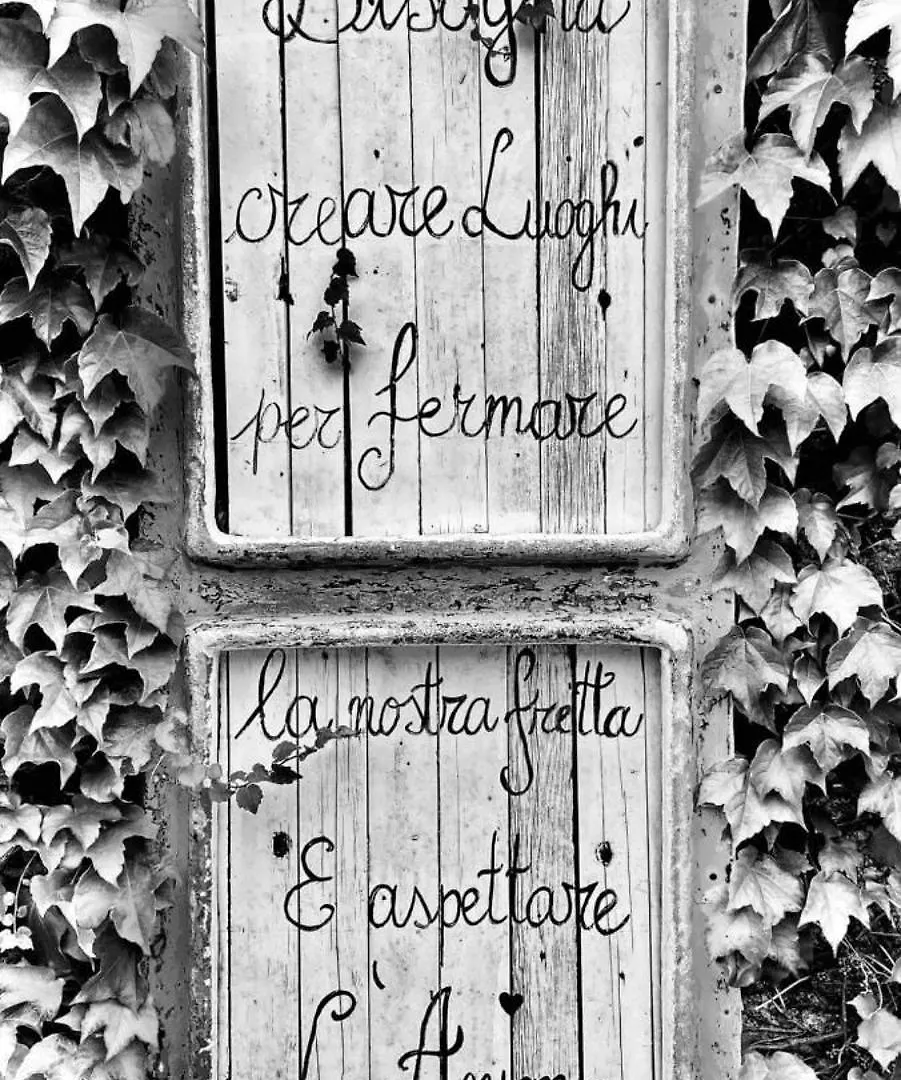 Bisogna
creare Luoghi
per fermare
la nostra fretta
E aspettare